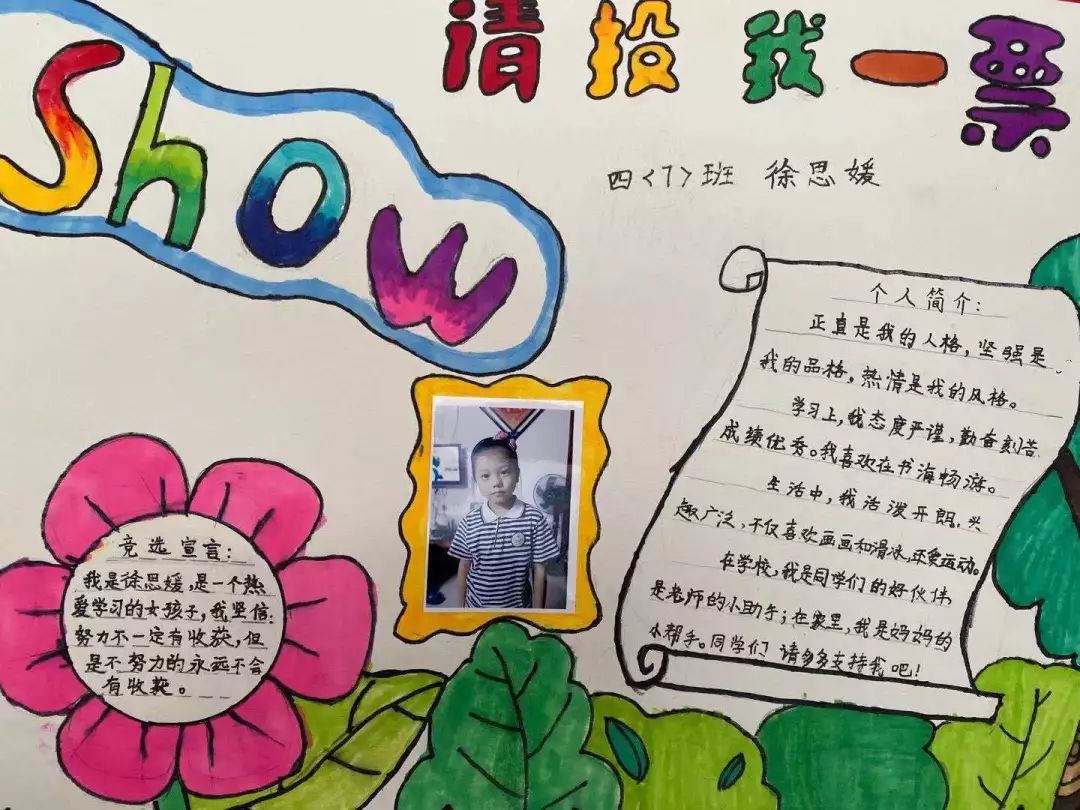 请投我一票
Show
四<7>班 徐思媛
个人简介:
正直是我的人格,坚强是
我的品格,热情是我的风格。
学习上,我态度严谨,勤奋刻苦
成绩优秀。我喜欢在书海畅游。
生活中,我活泼开朗,兴
趣广泛,不仅喜欢画画和滑冰,还爱运动。
在学校,我是同学们的好伙伴
是老师的小助手;在家里,我是妈妈的
小帮手。同学们 请多多支持我吧!
竞选宣言:
我是徐思媛,是一个热
爱学习的女孩子,我坚信:
努力不一定有收获,但
是不努力的永远不会
有收获。